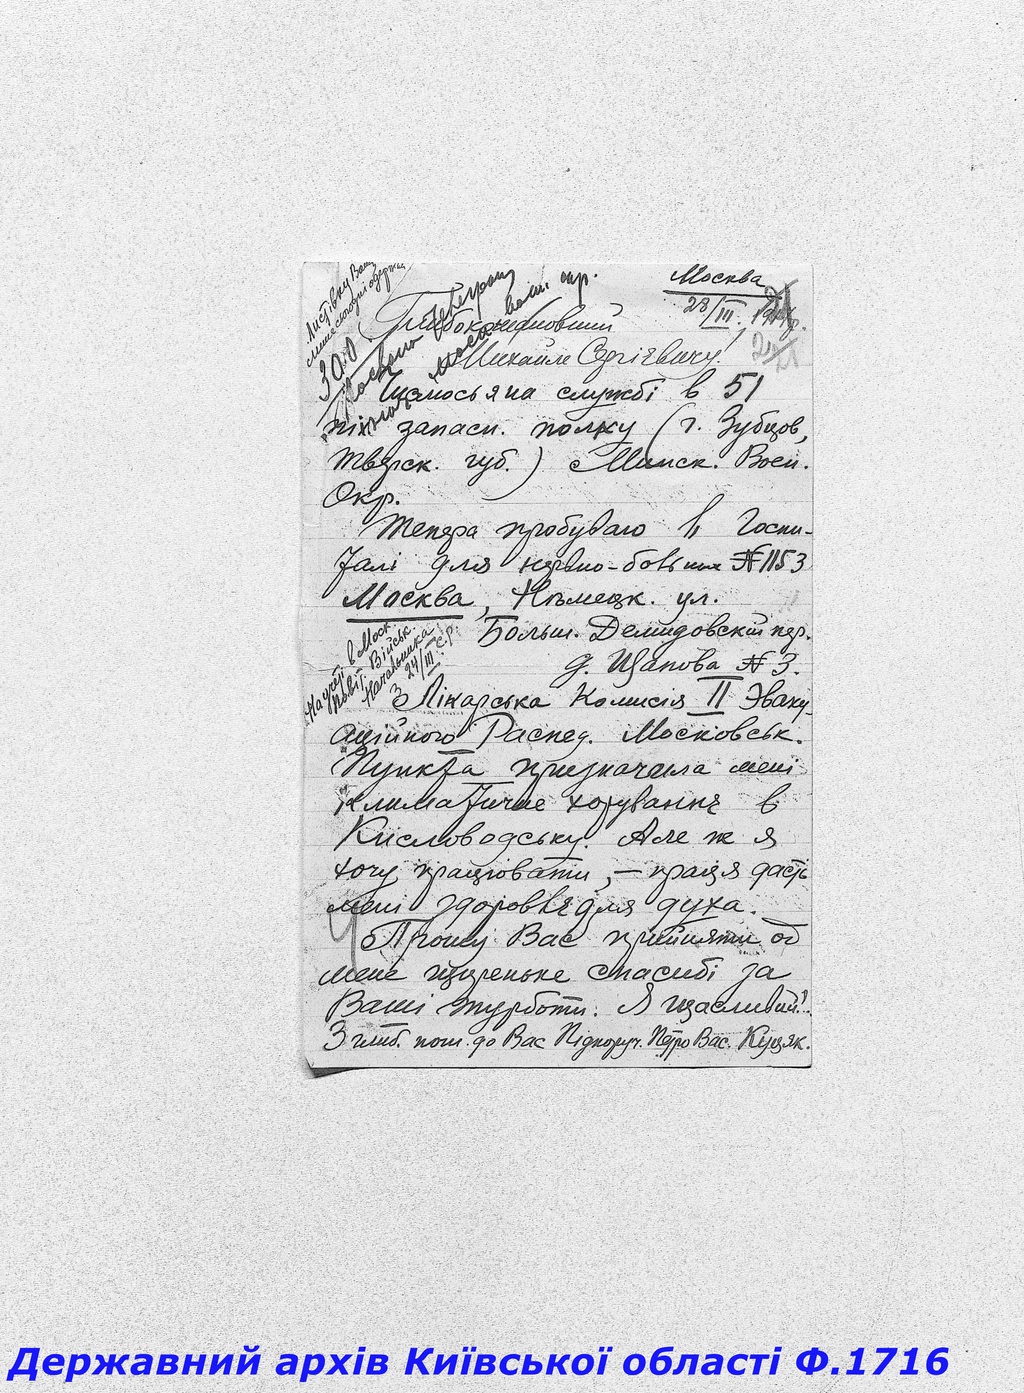 Москва
28/III. 1917 р.
Глибокошановний
Михайле Сергієвичу!
Числюсь я на службі в 51
піх. запасн. полку (г. Зубцов,
Тверск. губ.) Минск. Воен.
Окр.
Тепера пробуваю в Госпи-
талі для нервно-больних № 1153
Москва, Нѣмецк. ул.
Больш. Демидовскій пер.
д. Щапова № 3.
Лікарська Комисія II Эваку-
аційного Распред. Московськ.
Пункта призначила мені
климатичне лікування в
Кисловодську. Але ж я
хочу працювати, — праця дасть
мені здоровья для духа.
Прошу Вас прийняти од
мене щиреньке спасибі за
Ваші турботи. Я щасливий!..
З глиб. пош. до Вас Підпоруч. Петро Вас. Куцяк.
Листівку Вашу
мине сьогодні одержав
Начальника
24/III с.р.
Державний архів Київської області Ф.1716